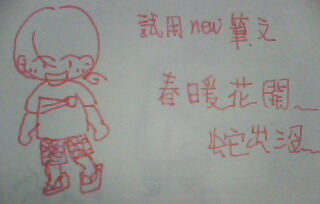 試用new筆文
春暖花開
蛇出沒